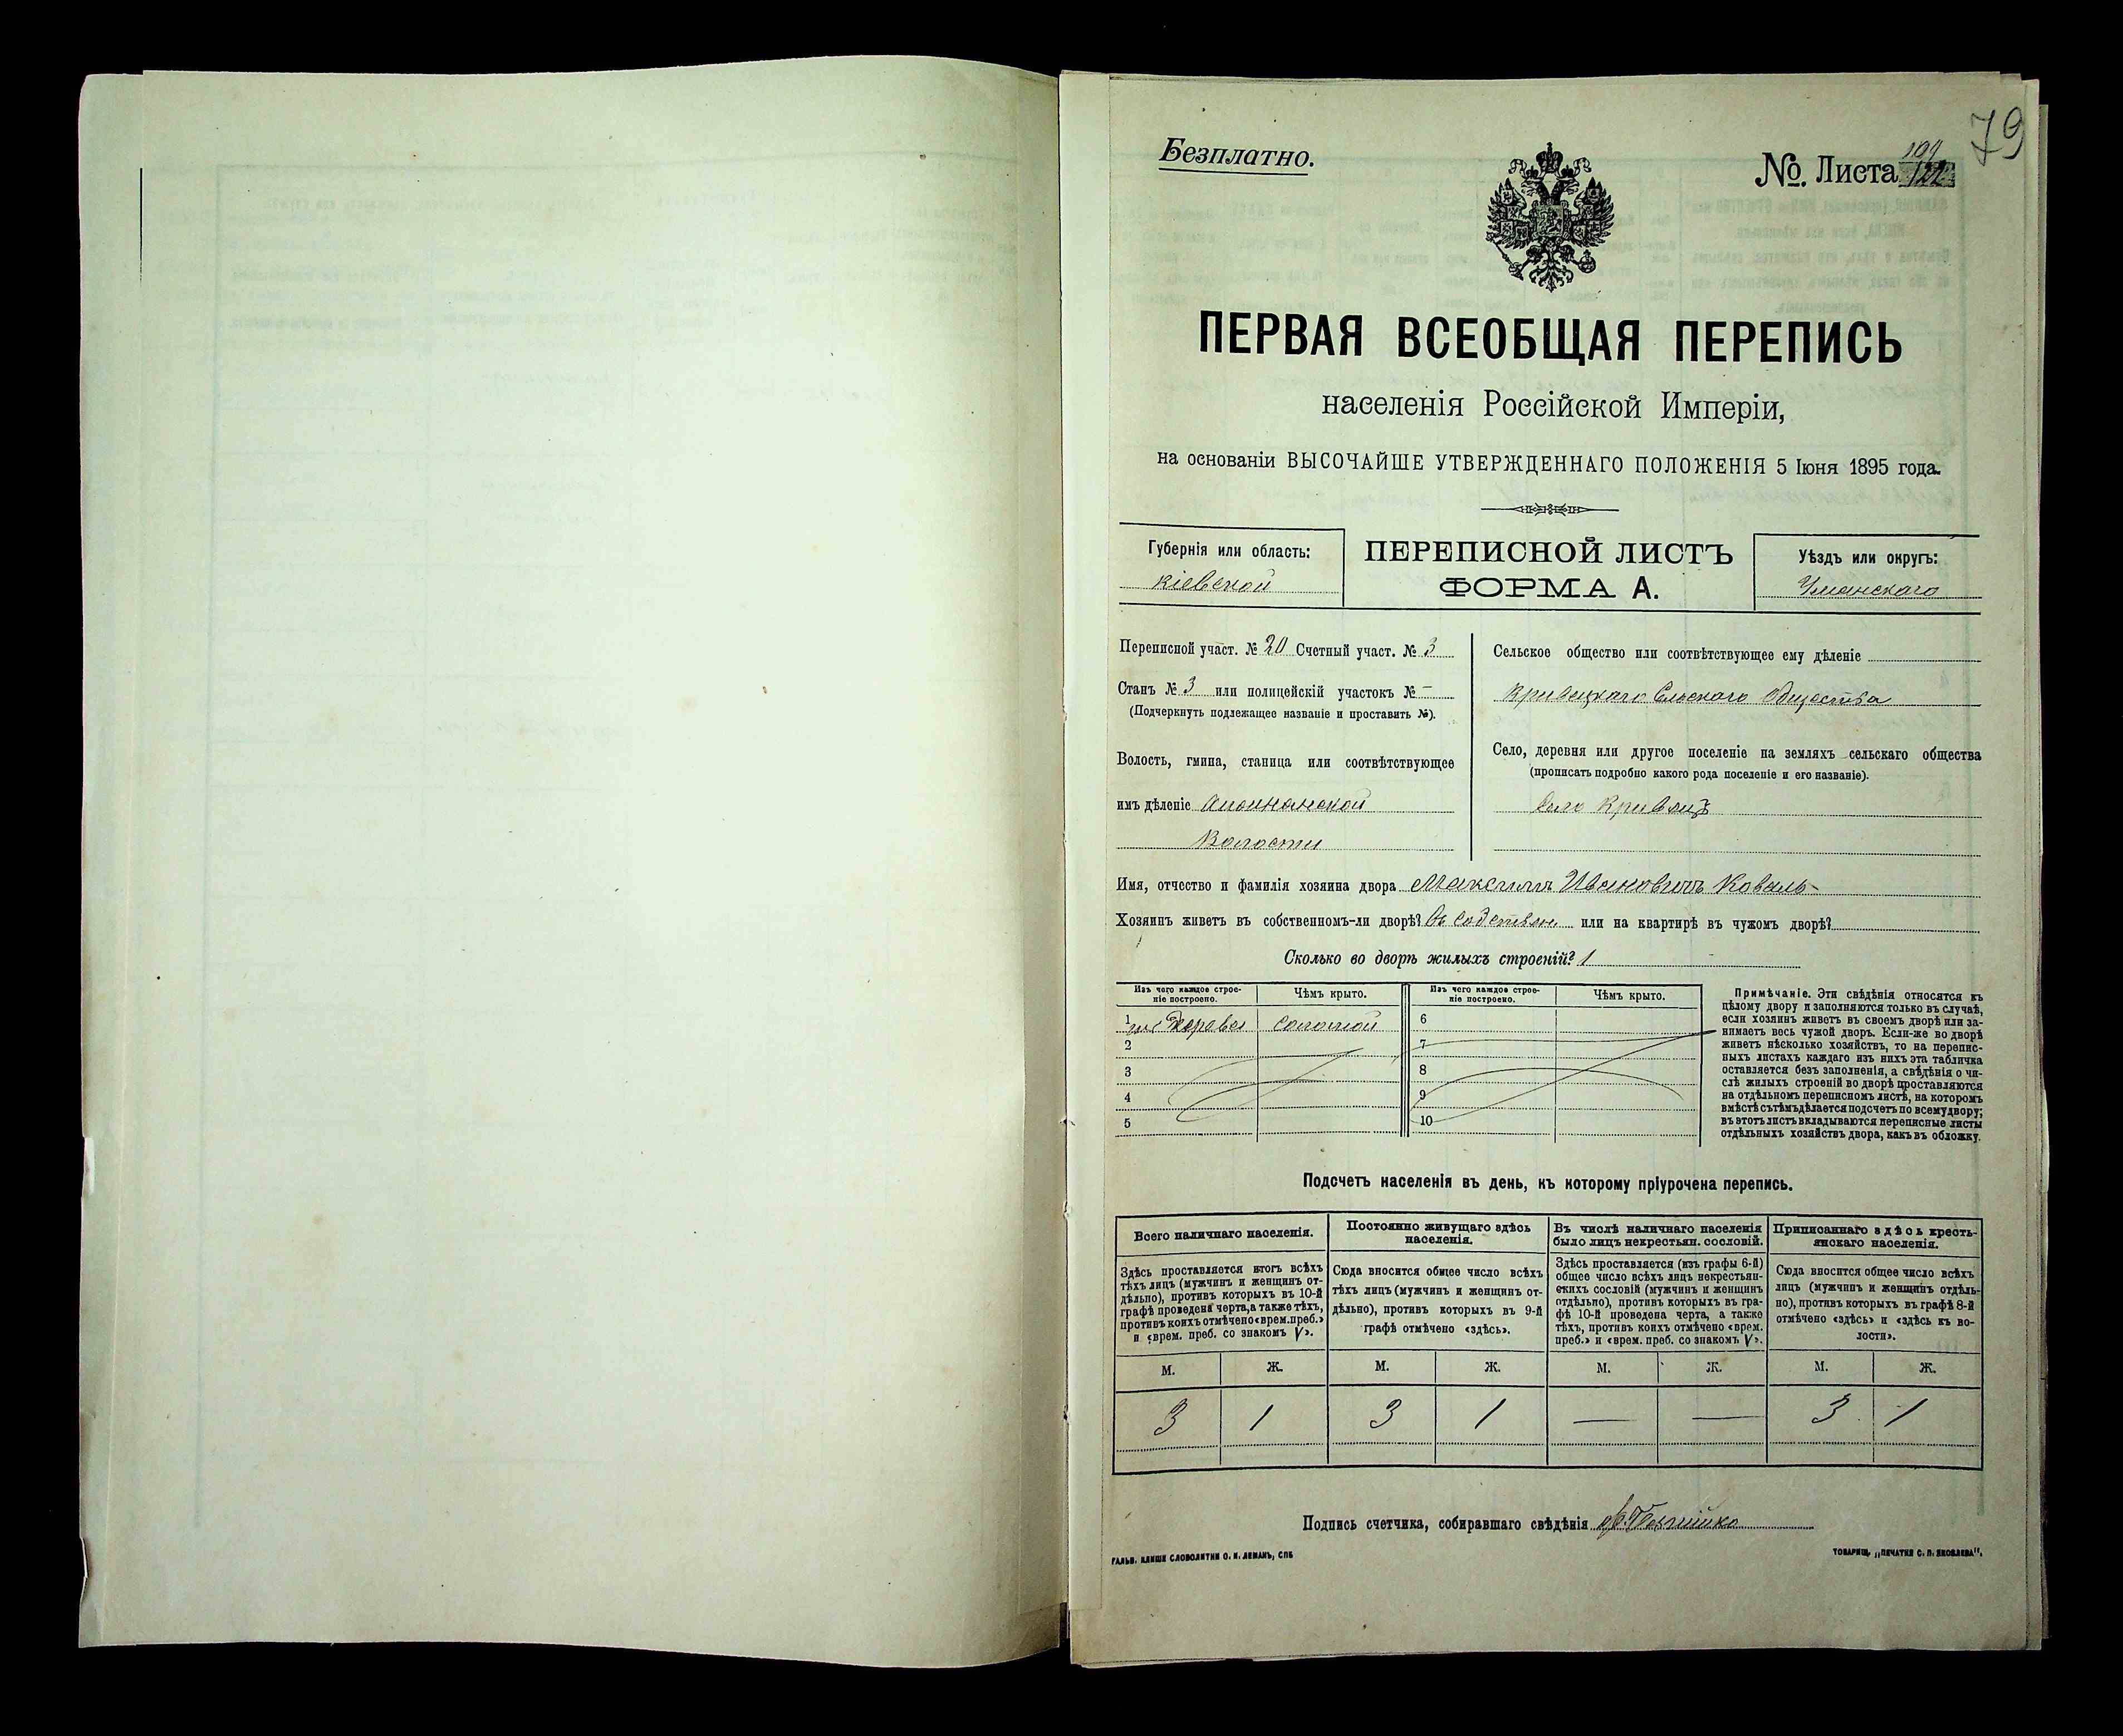 79
Безплатно.
№. Листа 122
ПЕРВАЯ ВСЕОБЩАЯ ПЕРЕПИСЬ
населенія Россійской Имперіи,
на основаніи ВЫСОЧАЙШЕ УТВЕРЖДЕННАГО ПОЛОЖЕНІЯ 5 Іюня 1895 года.
Губернія или область:
Кіевской
ПЕРЕПИСНОЙ ЛИСТЪ
ФОРМА А.
Уѣздъ или округъ:
Уманскаго
Переписной участ. № 20 Счетный участ. № 3
Станъ № 3 или полицейскій участокъ № —
(Подчеркнуть подлежащее названіе и проставить №).
Волость, гмина, станица или соотвѣтствующее
имъ дѣленіе
Волости
Сельское общество или соотвѣтствующее ему дѣленіе
Кривецкаго Сельскаго Общества
Село, деревня или другое поселеніе на земляхъ сельскаго общества
(прописать подробно какого рода поселеніе и его названіе).
Село Кривецъ
Имя, отчество и фамилія хозяина двора Максимъ Ивановичъ Коваль
Хозяинъ живетъ въ собственномъ-ли дворѣ? Въ собствен. или на квартирѣ въ чужомъ дворѣ?
Сколько во дворѣ жилыхъ строеній? 1
Изъ чего каждое строе-
ніе построено.
Чѣмъ крыто.
Изъ чего каждое строе-
ніе построено.
Чѣмъ крыто.
1 изъ дерева соломой 6
2 7
3 8
4 9
5 10
Примѣчаніе. Эти свѣдѣнія относятся къ
цѣлому двору и заполняются только въ случаѣ,
если хозяинъ живетъ въ своемъ дворѣ или за-
нимаетъ весь чужой дворъ. Если-же во дворѣ
живетъ нѣсколько хозяйствъ, то на перепис-
ныхъ листахъ каждаго изъ нихъ эта табличка
оставляется безъ заполненія, а свѣдѣнія о чи-
слѣ жилыхъ строеній во дворѣ проставляются
на отдѣльномъ переписномъ листѣ, на которомъ
вмѣстѣ съ тѣмъ дѣлается подсчетъ по всему двору;
въ этотъ листъ вкладываются переписные листы
отдѣльныхъ хозяйствъ двора, какъ въ обложку.
Подсчетъ населенія въ день, къ которому пріурочена перепись.
Всего наличнаго населенія.
Здѣсь проставляется итогъ всѣхъ
тѣхъ лицъ (мужчинъ и женщинъ от-
дѣльно), противъ которыхъ въ 10-й
графѣ проведена черта, а также тѣхъ,
противъ коихъ отмѣчено «врем. преб.»
и «врем. преб. со знакомъ V».
Постоянно живущаго здѣсь
населенія.
Сюда вносится общее число всѣхъ
тѣхъ лицъ (мужчинъ и женщинъ от-
дѣльно), противъ которыхъ въ 9-й
графѣ отмѣчено «здѣсь».
Въ числѣ наличнаго населенія
было лицъ некрестьян. сословій.
Здѣсь проставляется (изъ графы 6-й)
общее число всѣхъ лицъ некрестьян-
скихъ сословій (мужчинъ и женщинъ
отдѣльно), противъ которыхъ въ гра-
фѣ 10-й проведена черта, а также
тѣхъ, противъ коихъ отмѣчено «врем.
преб.» и «врем. преб. со знакомъ V».
Приписаннаго здѣсь кресть-
янскаго населенія.
Сюда вносится общее число всѣхъ
лицъ (мужчинъ и женщинъ отдѣль-
но), противъ которыхъ въ графѣ 8-й
отмѣчено «здѣсь» и «здѣсь къ во-
лости».
М. Ж. М. Ж. М. Ж. М. Ж.
3 1 3 1 — — 3 1
Подпись счетчика, собиравшаго свѣдѣнія
ГАЛЬВ. КЛИШЕ СЛОВОЛИТНИ О. И. ЛЕМАНЪ, СПБ
ТОВАРИЩ. „ПЕЧАТНЯ С. П. ЯКОВЛЕВА".